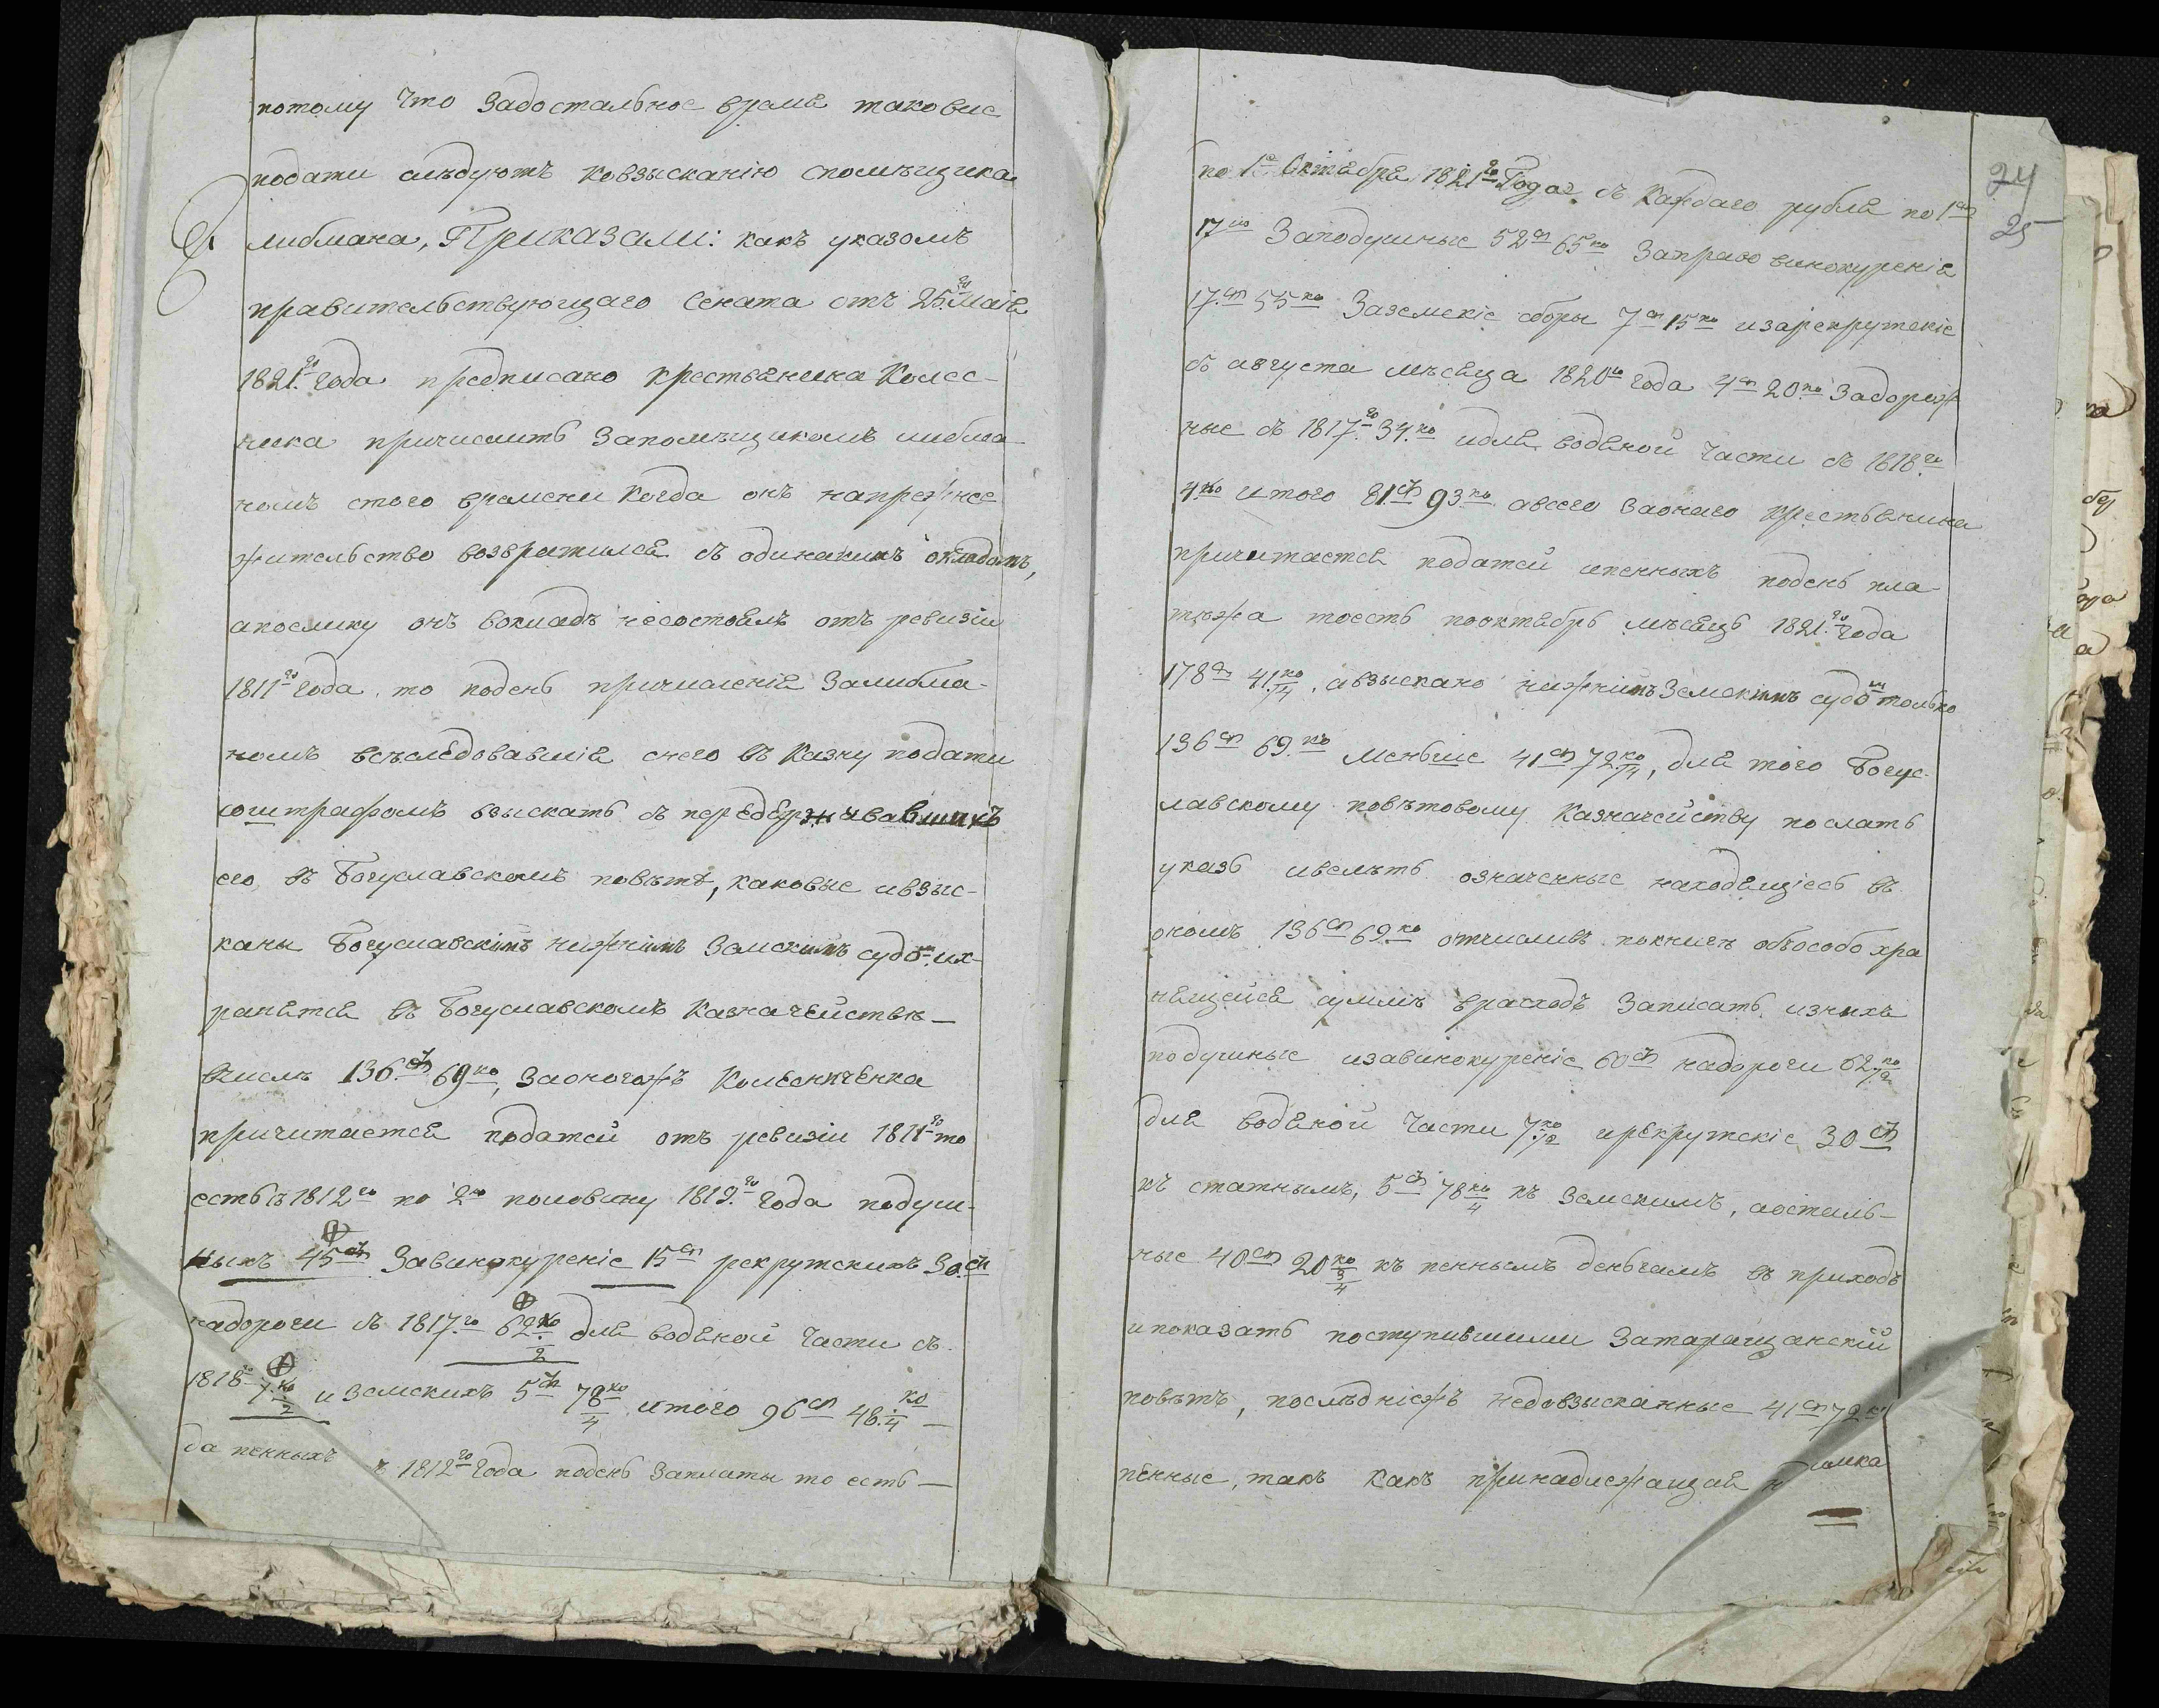 потому что Задостальное время таковые
подати слѣдуютъ ковзысканію спомѣщика
либмана, Приказали: какъ указомъ
правительствующаго Сената отъ 25го Маія
1821.го года предписано крестьянина Колес-
ника причислить Запомѣщикомъ либма-
номъ стого времени когда онъ напрежнее
жительство возвратился съ одинакимъ окладомъ,
апоелику онъ вокладъ несостоялъ отъ ревизіи
1811го года, то подень причисленія Залибма-
номъ всѣслѣдовавшія снего въ казну подати
соштрафомъ взыскать съ передерживавшихъ
его въ Богуславскомъ повѣтѣ, каковые ивзыс-
каны Богуславскимъ нижнимъ Земскимъ судом их-
ранятся въ Богуславскомъ Казначействѣ —
вчислѣ 136.ру 69ко, Заоногожъ Колесниченка
причитается податей отъ ревизіи 1811го то
есть съ 1812го по 2ю половину 1819.го года подуш-
ныхъ 45ру Завинокуреніе 15ру рекрутскихъ 30.ру
надороги съ 1817.го 62.ко/2 для водяной части съ
1818го 7.ко/2 и Земскихъ 5ру 78ко/4 итого 96ру 48.ко/4 —
да пенныхъ съ 1812го года подень Заплаты то есть —
24
25
по 1е Октября 1821го Года съ каждаго рубля по 1ру
17ко Заподушные 52ру 65ко Заправо винокуренія
17.ру 55ко Заземскіе сборы 7ру 15ко изарекрутскіе
съ августа мѣсяца 1820го года 4ру 20.ко Задорож
ные съ 1817.го 34.ко идля водяной части съ 1818.го
4ко итого 81ру 93.ко авсего Заонаго крестьянина
причитается податей ипенныхъ подень пла-
тежа тоесть пооктябрь мѣсяцъ 1821.го года
178ру 41.ко/4, авзыскано нижнимъ Земскимъ судом только
136ру 69.ко меньше 41ру 72.ко/4, для того Богус-
лавскому повѣтовому Казначейству послать
указъ ивелѣть означенные находящіесь въ
ономъ 136ру 69.ко отчисливъ покнигѣ объособо хра
нящейся суммѣ врасходъ Записать изнихъ
подушные изавинокуреніе 60ру надороги 62ко/2
для водяной части 7ко/2 ирекрутскіе 30ру
къ статнымъ, 5ру 78ко/4 къ Земскимъ, аосталь-
ные 40ру 20ко 3/4 къ пеннымъ деньгамъ въ приходъ
ипоказать поступившими Затаращанскій
повѣтъ, послѣдніежъ недовзысканные 41ру 72ко
пенные, такъ какъ принадлежащая